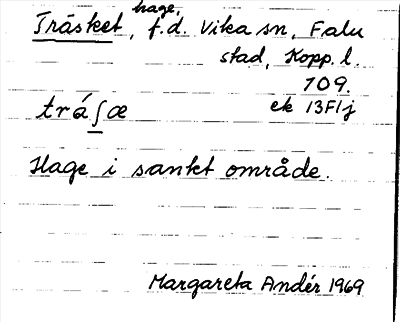 Träsket, hage, f.d. Vika sn, Falu
stad, Kopp. l.
109.
trá̱ʃæ ek 13F1j
Hage i sankt område.
Margareta Andér 1969